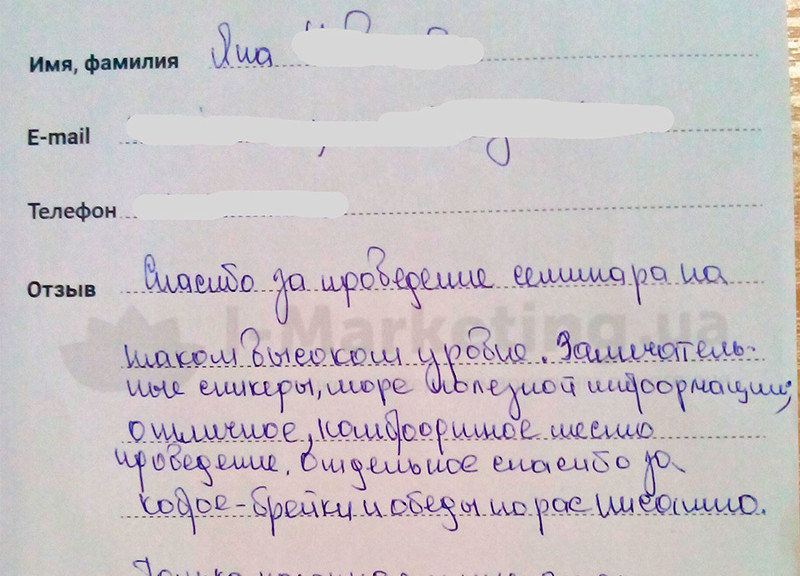 Имя, фамилия Яна
E-mail
Телефон
Отзыв Спасибо за проведение семинара на
I-Marketing.ua
таком высоком уровне. Замечатель-
ные спикеры, море полезной информации,
отличное, комфортное место
проведение. Отдельное спасибо за
кофе-брейки и обеды по расписанию.
Только